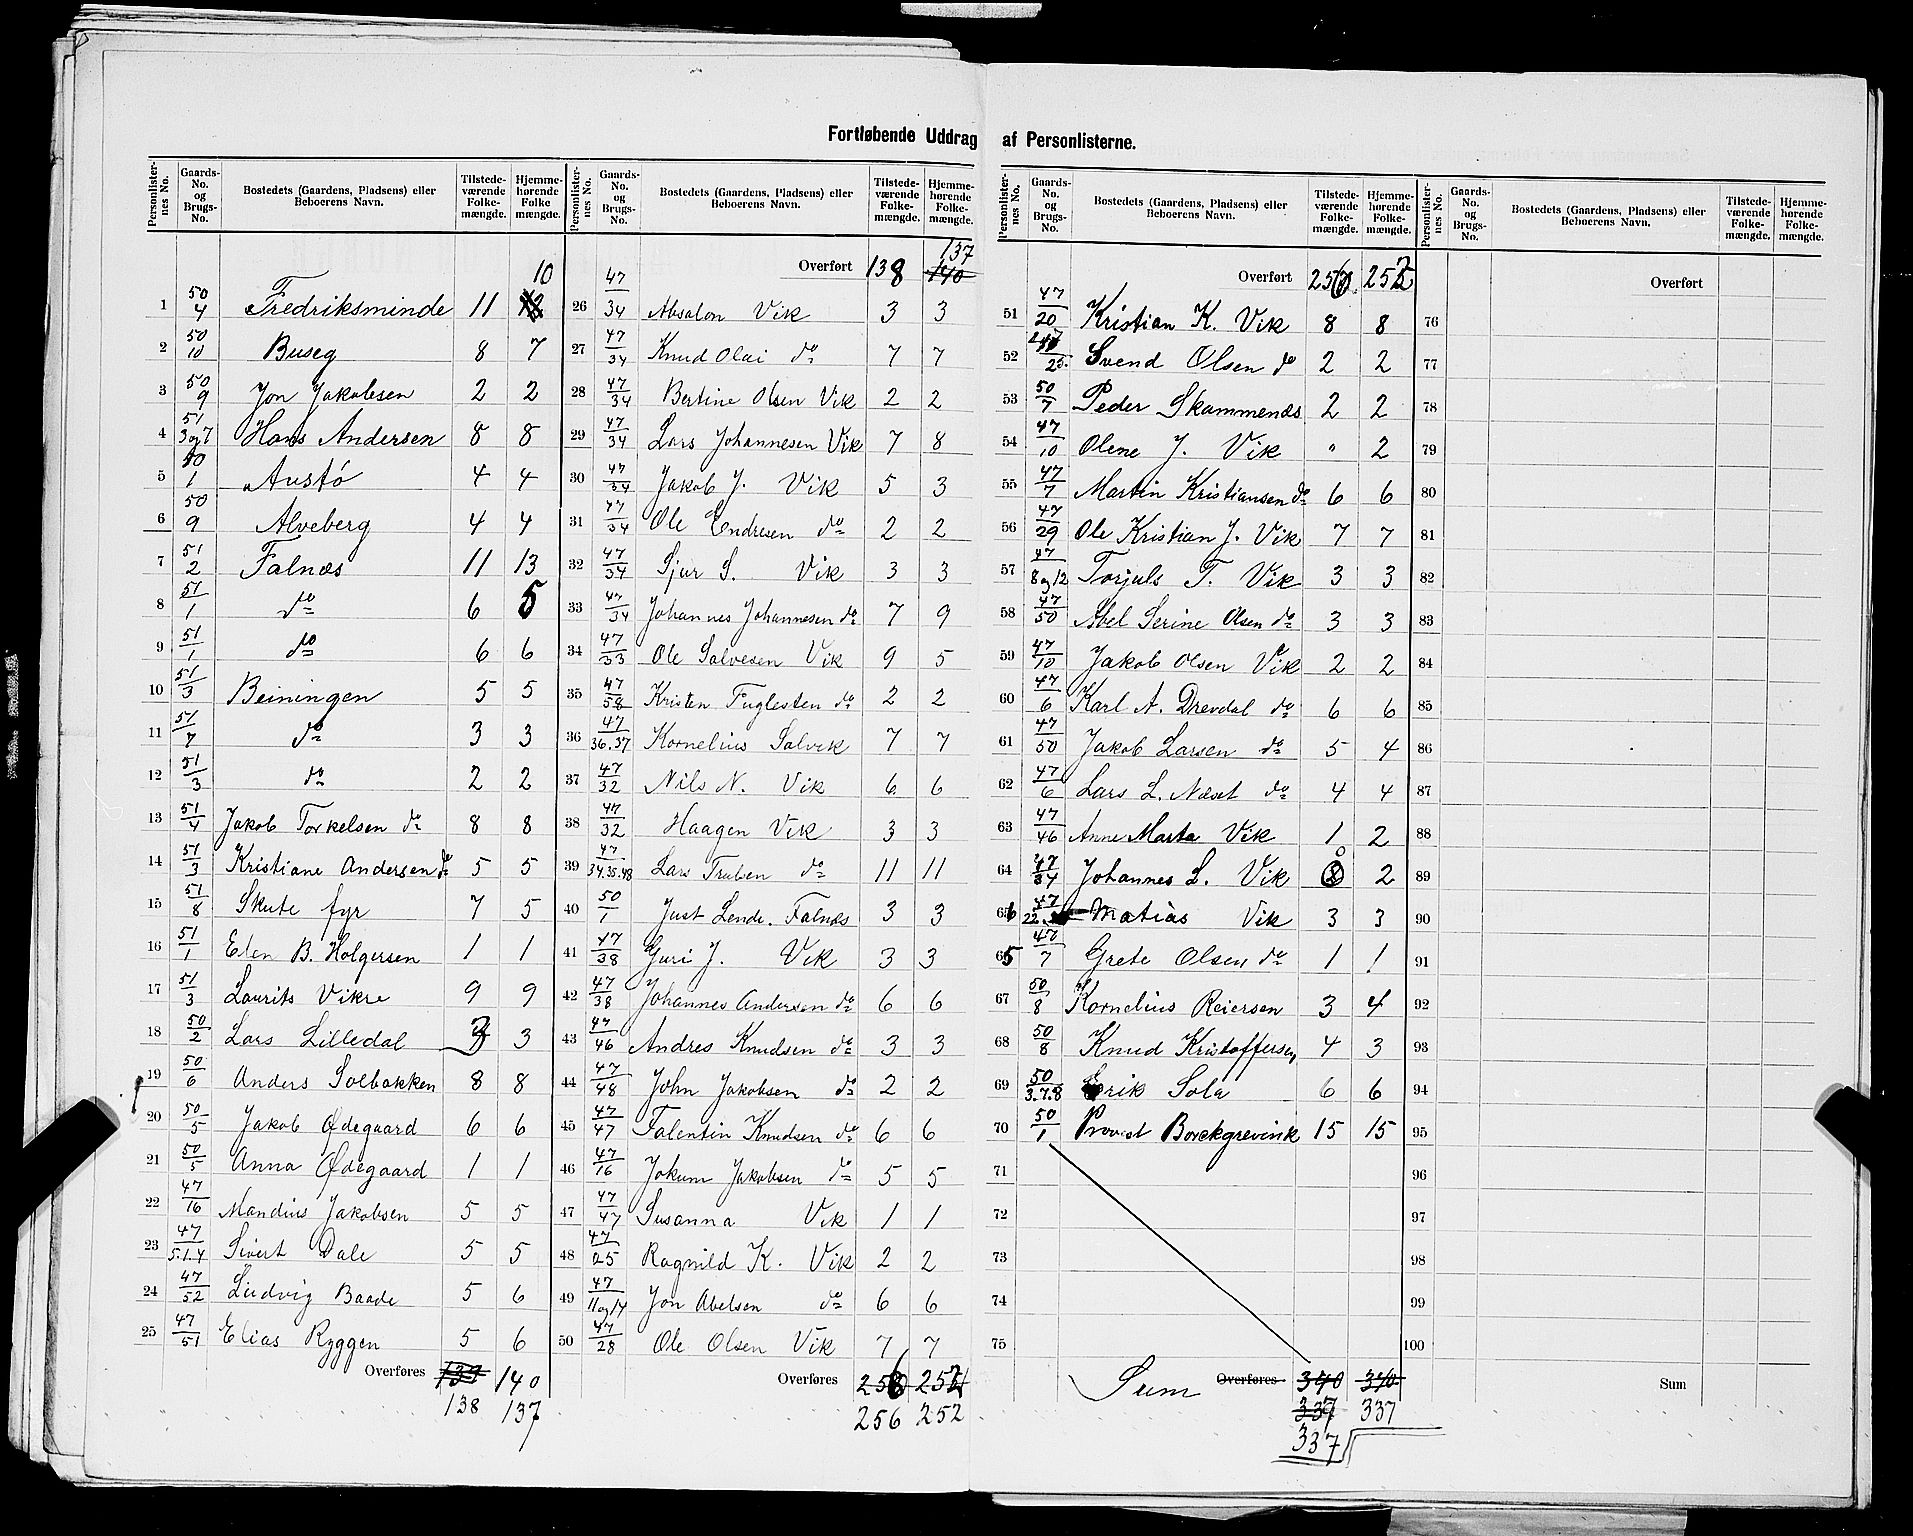 Fortløbende Uddrag af Personlisterne.
Personlister-nes No. Gaards-No. og Brugs-No. Bostedets (Gaardens, Pladsens) eller Beboerens Navn. Tilstede-værende Folke-mængde. Hjemme-hørende Folke mængde.
10
1 50/4 Fredriksminde 11
2 50/10 Buseg 8 7
3 50/9 Jon Jakobsen 2 2
4 51/3og7 Hans Andersen 8 8
5 50/1 Austø 4 4
6 50/9 Alveberg 4 4
7 51/2 Falnæs 11 13
8 51/1 do 6 5
9 51/1 do 6 6
10 51/3 Beiningen 5 5
11 51/7 do 3 3
12 51/3 do 2 2
13 51/4 Jakob Torkelsen do 8 8
14 51/3 Kristiane Andersen do 5 5
15 51/8 Skute fyr 7 5
16 51/1 Elen B. Holgersen 1 1
17 51/3 Laurits Vikre 9 9
18 50/2 Lars Lilledal 3
19 50/6 Anders Solbakken 8 8
20 50/5 Jakob Ødegaard 6 6
21 50/5 Anna Ødegaard 1 1
22 47/16 Mandius Jakobsen 5 5
23 47/5.1.4 Sivert Dale 5 5
24 47/52 Ludvig Baade 5 6
25 47/51 Elias Ryggen 5 6
Overføres 139 140
138 137
Personlister-nes No. Gaards-No. og Brugs-No. Bostedets (Gaardens, Pladsens) eller Beboerens Navn. Tilstede-værende Folke-mængde. Hjemme-hørende Folke-mængde.
137
Overført 138 140
26 47/34 Absalon Vik 3 3
27 47/34 Knud Olai do 7 7
28 47/34 Bertine Olsen Vik 2 2
29 47/34 Lars Johannesen Vik 7 8
30 47/34 Jakob J. Vik 5 3
31 47/34 Ole Endresen do 2 2
32 47/34 Sjur S. Vik 3 3
33 47/34 Johannes Johannesen do 7 9
34 47/33 Ole Salvesen Vik 9 5
35 47/58 Kristen Fuglesten do 2 2
36 47/36.37 Kornelius Salvik 7 7
37 47/32 Nils N. Vik 6 6
38 47/32 Haagen Vik 3 3
39 47/34.35.48 Lars Trulsen do 11 11
40 50/1 Just Lende. Falnæs 3 3
41 47/38 Guri J. Vik 3 3
42 47/38 Johannes Andersen do 6 6
43 47/46 Andres Knudsen do 3 3
44 47/48 John Jakobsen do 2 2
45 47/47 Falentin Knudsen do 6 6
46 47/16 Jokum Jakobsen do 5 5
47 47/47 Susanna Vik 1 1
48 47/25 Ragnild K. Vik 2 2
49 47/11og14 Jon Abelsen do 6 6
50 47/28 Ole Olsen Vik 7 7
Overføres
256 252
Personlister-nes No. Gaards-No. og Brugs-No. Bostedets (Gaardens, Pladsens) eller Beboerens Navn. Tilstede-værende Folke-mængde. Hjemme-hørende Folke-mængde.
Overført 256 252
51 47/20 Kristian K. Vik 8 8
52 47/25. Svend Olsen do 2 2
53 50/7 Peder Skammenæs 2 2
54 47/10 Olene J. Vik " 2
55 47/7 Martin Kristiansen do 6 6
56 47/29 Ole Kristian J. Vik 7 7
57 47/8og12 Torjuls T. Vik 3 3
58 47/50 Abel Serine Olsen do 3 3
59 47/10 Jakob Olsen Vik 2 2
60 47/6 Karl A. Drevdal do 6 6
61 47/50 Jakob Larsen do 5 4
62 47/6 Lars L. Næset do 4 4
63 47/46 Anne Marta Vik 1 2
64 47/34 Johannes L. Vik 0 2
66 47/22. Matias Vik 3 3
65 47/7 Grete Olsen do 1 1
67 50/8 Kornelius Reiersen 3 4
68 50/8 Knud Kristoffersen 4 3
69 50/3.7.8 Erik Sola 6 6
70 50/1 Provst Borckgrevink 15 15
71
72
73
74
75
Sum Overføres 340 340
337 337
337
Personlister-nes No. Gaards-No. og Brugs-No. Bostedets (Gaardens, Pladsens) eller Beboerens Navn. Tilstede-værende Folke-mængde. Hjemme-hørende Folke-mængde.
Overført
76
77
78
79
80
81
82
83
84
85
86
87
88
89
90
91
92
93
94
95
96
97
98
99
100
Sum